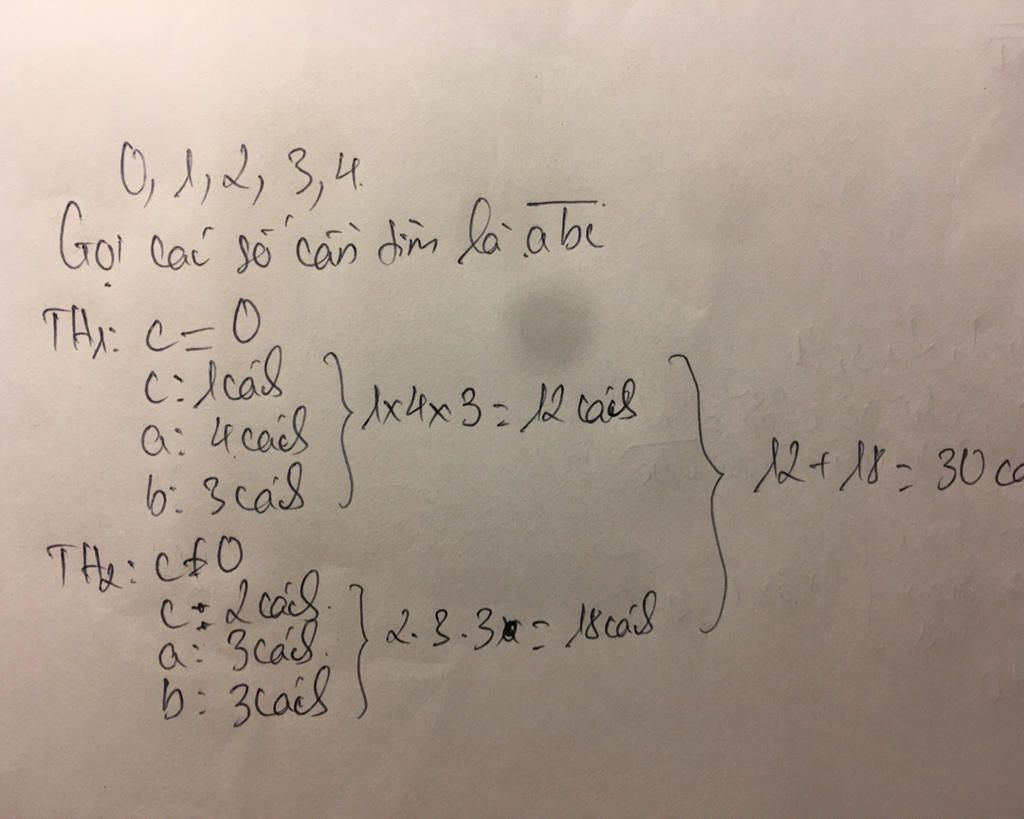 0, 1, 2, 3, 4.
Gọi các số cần tìm là abc
TH1: c = 0
c: 1 cách
a: 4 cách
b: 3 cách
1x4x3 = 12 cách
TH2: c ≠ 0
c: 2 cách.
a: 3 cách.
b: 3 cách
2.3.3 = 18 cách
12 + 18 = 30 cá